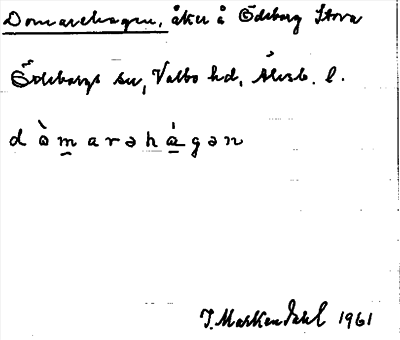 Domarehagen, åker å Ödeborg Stora
Ödeborgs sn, Valbo hd, Älvsb. l.
dò̀marəhágən
I. Markendahl 1961